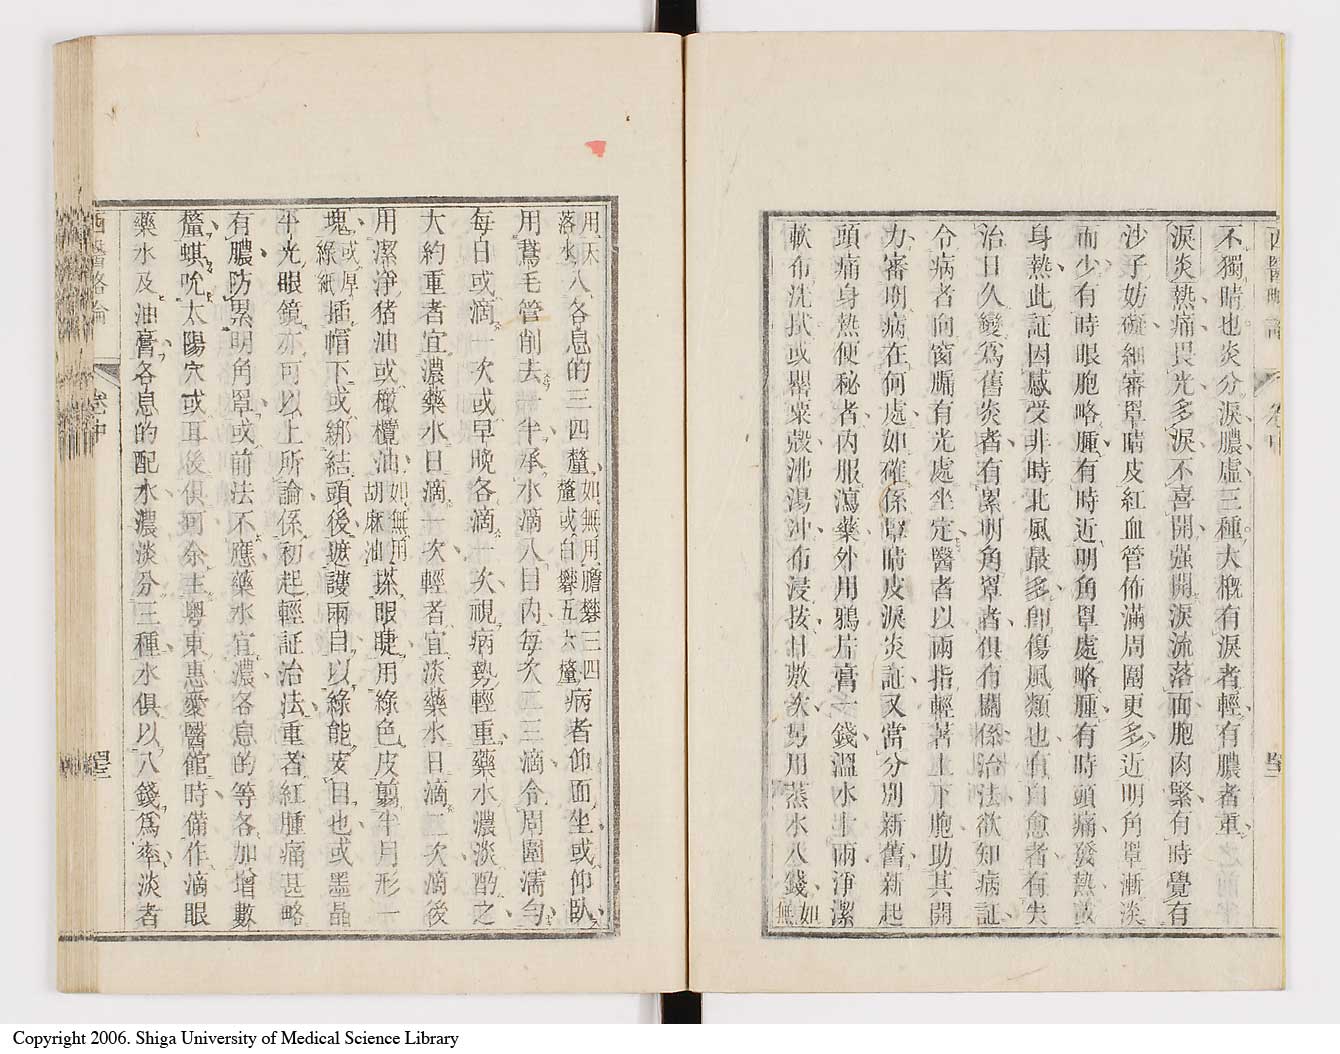 不獨睛也炎分淚膿虛三種大概有淚者輕有膿者重
淚炎熱痛畏光多淚不喜開强開淚流落面胞肉緊有時覺有
沙子妨礙細審罩睛皮紅血管佈滿周圍更多近明角罩漸淡
而少有時眼胞略腫有時近明角罩處略腫有時頭痛發熱或
身熱此証因感受非時北風最多卽傷風類也有自愈者有失
治日久變爲舊炎者有累明角罩者俱有關係治法欲知病証
令病者向窗牖有光處坐定醫者以兩指輕著上下胞助其開
力審明病在何處如確係罩睛皮淚炎証又當分別新舊新起
頭痛身熱便秘者內服瀉藥外用鴉片膏一錢溫水十兩淨潔
軟布洗拭或罌粟殼沸湯沖布浸按日敷次另用蒸水八錢如無
用天落水入各息的三四釐如無用膽礬三四釐或白礬五六釐病者仰面坐或仰臥
用鵞毛管削去一半承水滴入日內每次二三滴令周圍濡勻
每日或滴一次或早晚各滴一次視病勢輕重藥水濃淡酌之
大約重者宜濃藥水日滴一次輕者宜淡藥水日滴二次滴後
用潔淨猪油或橄欖油如無用胡麻油搽眼睫用綠色皮翦半月形一
塊或厚綠紙插帽下或綁結頭後遮護兩目以綠能安目也或墨晶
平光眼鏡亦可以上所論係初起輕証治法重者紅腫痛甚略
有膿防累明角罩或前法不應藥水宜濃各息的等各加增數
釐蜞吮太陽穴或耳後俱可余主粤東惠愛醫館時備作滴眼
藥水及油膏各息的配水濃淡分三種水俱以八錢爲率淡者
西醫略論
卷中